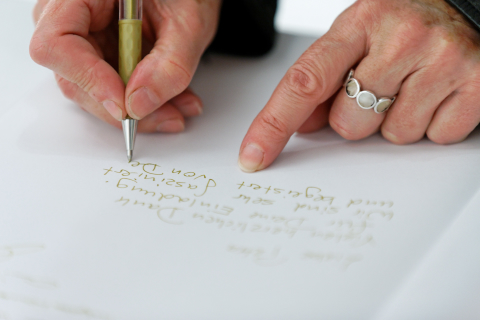 Vielen herzlichen Dank
für Ihre Einladung.
Wir sind sehr fasziniert
und begeistert von De